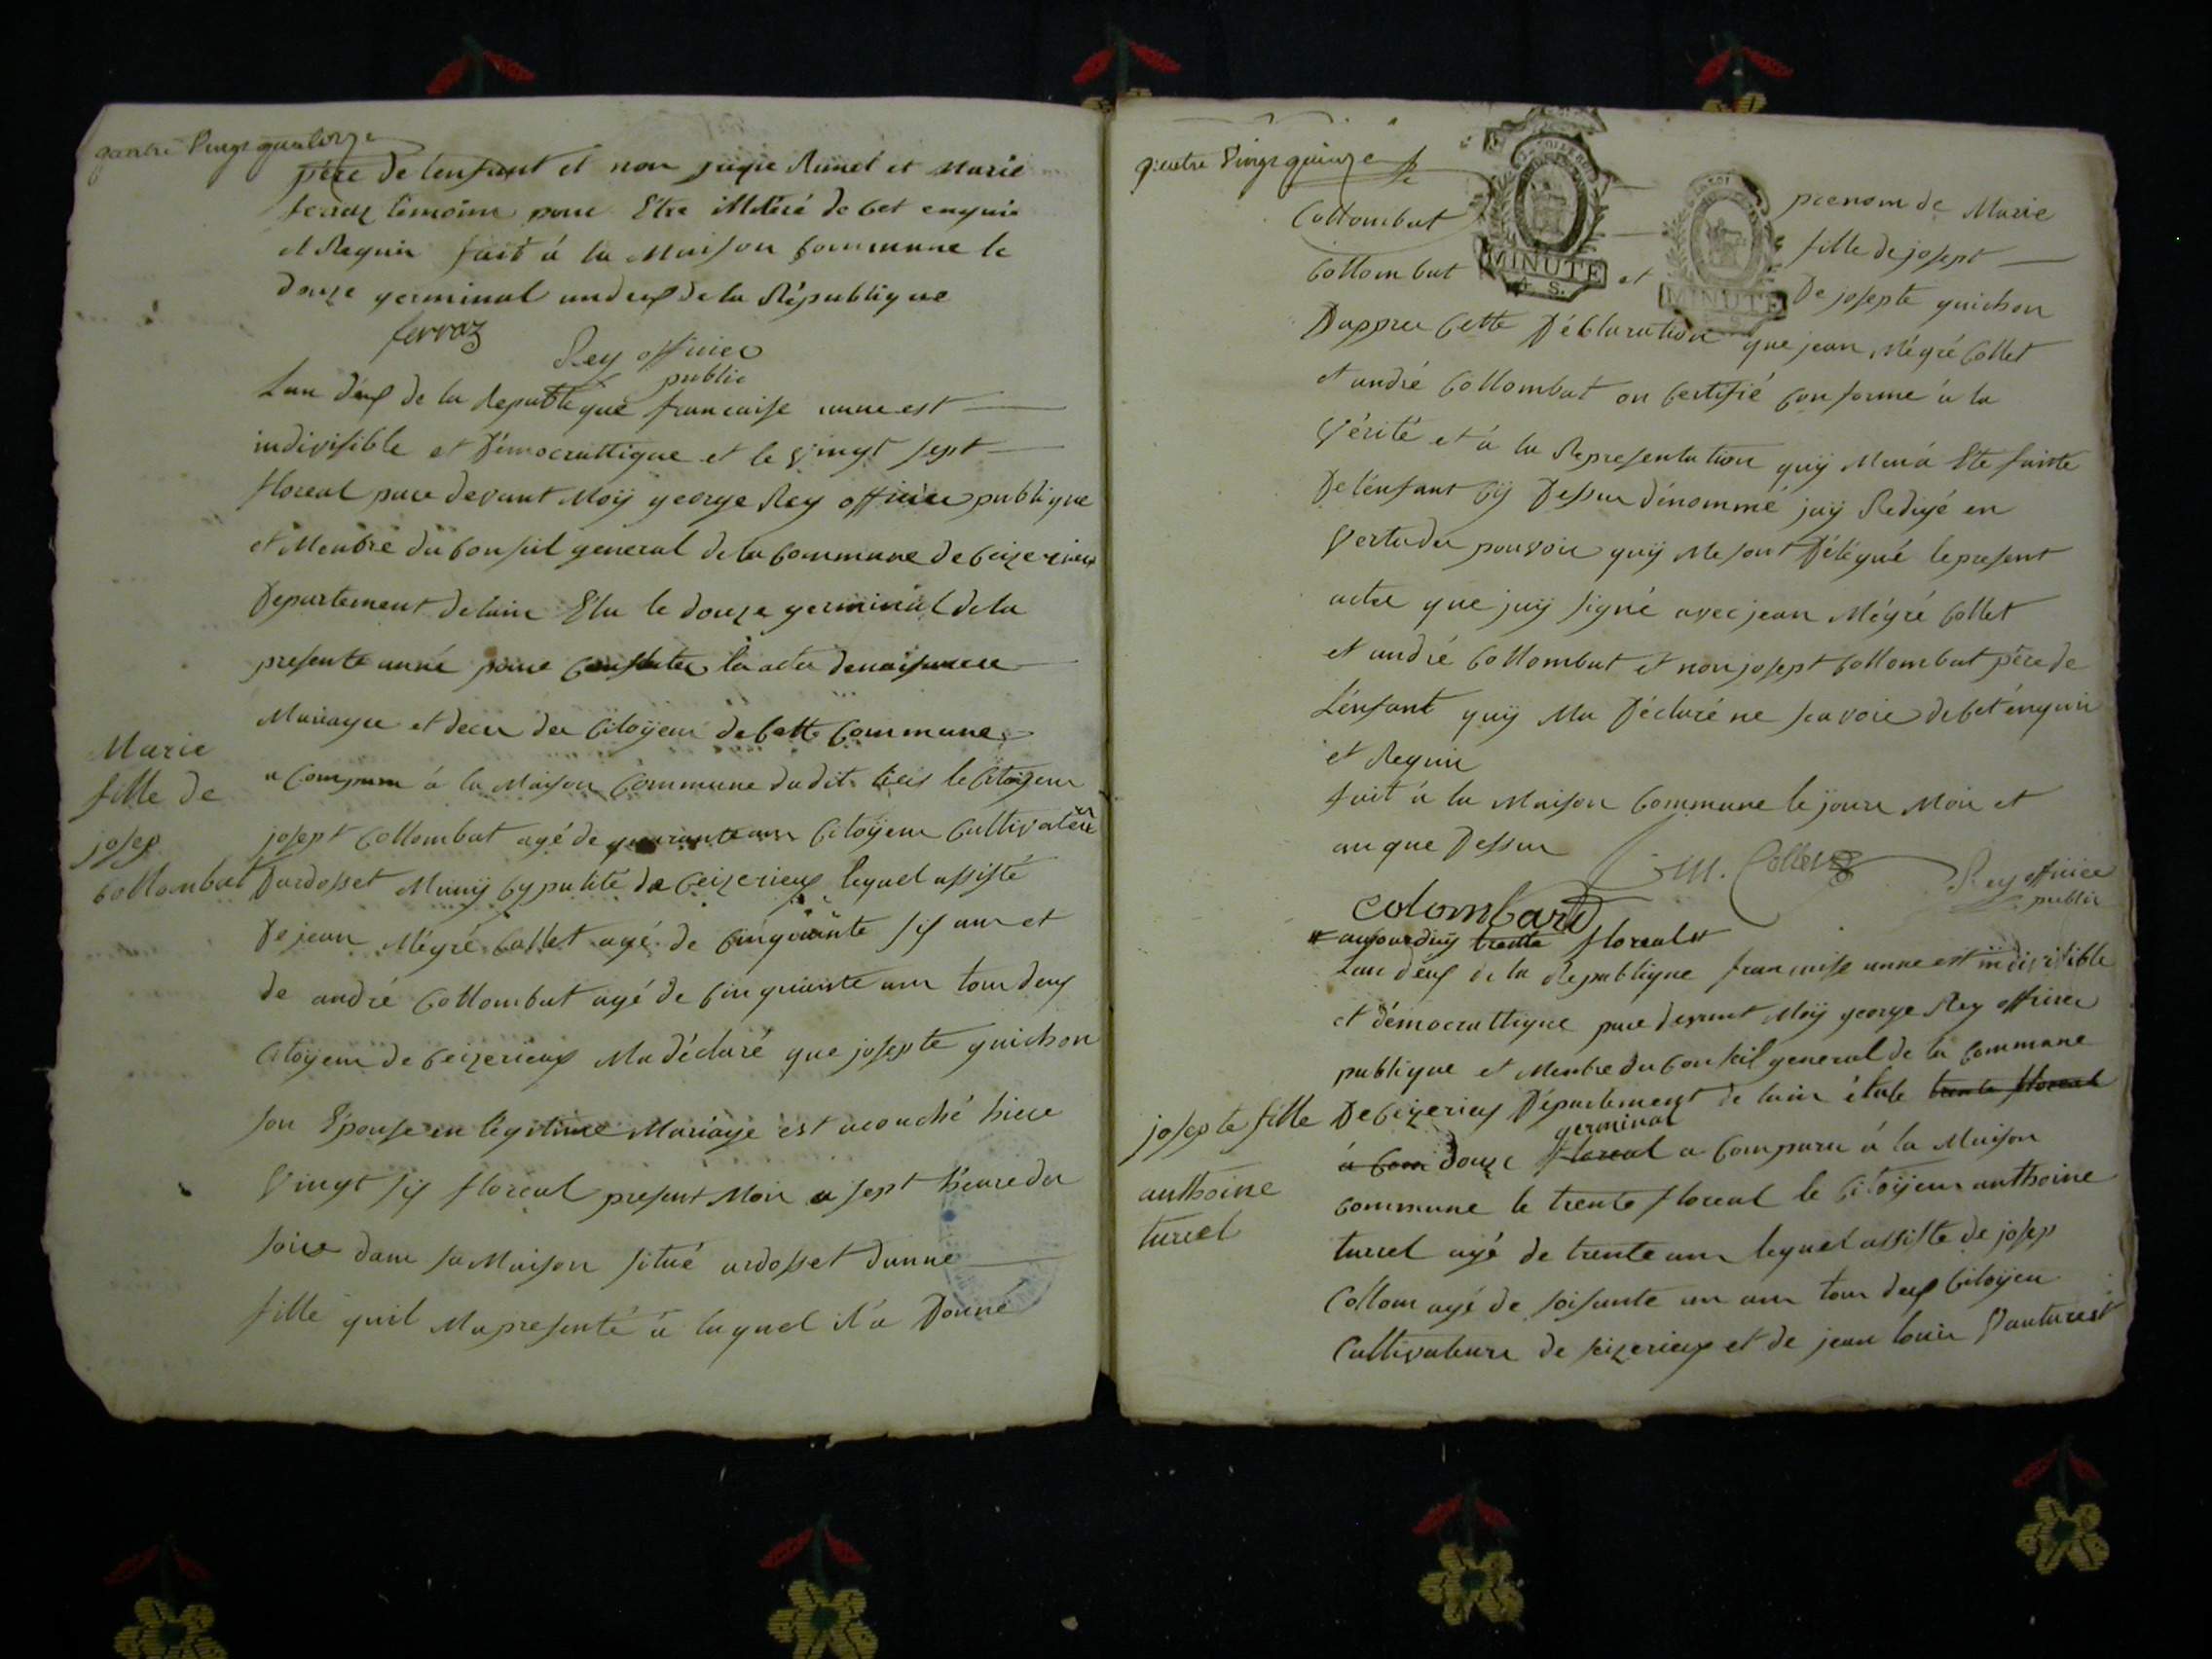 quatre vingt quatorze
père de lenfant et non juque Rimet et Marie
ferraz temoins pour Etre illitéré de cet enquis
et Requis fait á la Maison commune le
douze germinal an deux de la République
ferraz
Rey officier
public
Lan deux de la Republique francaisse unne est
indivisible et Démocrattique et le vingt sept
floreal pare devant Moÿ george Rey officier publique
et Menbre du conseil general de la commune de ceizerieux
Departement de lain Elu le douze germinal de la
presente anné pour constater les actes de naissance
Mariages et deces des citoÿens de cette commune
a comparu á la Maison commune dudit lieis le citoÿen
Marie
fille de
josep
collombat
josept collombat agé de quarante ans citoÿen cultivateur
Dardosset Munÿcypalité de ceizerieux lequel assisté
De jean Mégré collet agé de cinquante six ans et
de andré collombat agé de cinquante ans tous deux
citoÿens de ceizerieux Ma déclaré que josepte guichon
son Épouse en légitime Mariage est acouché hiere
vingt six floreal present Mois a sept heure du
soire dans sa Maison situé ardosset dunne
fille quil Ma presenté á laquel il á Donné
quatre vingt quinze
MINUTE
4 S.
MINUTE
prenom de Marie
Collombat fille de josept
collombat et De josepte guichon
Dappres cette Déclaration que jean Mégré collet
et andré collombat on certifié conforme á la
vérité et á la Representation quÿ Má Ete fairte
De lénfant cÿ Dessus dénommé jaÿ Redigé en
vertu des pouvoir quÿ Me sont Délégué le present
actes que jaÿ signé avec jean Mégré collet
et andré collombat et non josept collombat père de
Lénfant quÿ Ma Déclaré ne savoir de cet énquis
et Requis
fait á la Maison commune le jours Mois et
an que Dessus
J M. Collet
Rey officier
public
colombard
aujourduÿ trente floreal
Lan deux de la Republique francaise unne est indivisible
et démocrattique pare devant Moÿ george Rey officier
publique et Menbre du conseil general de la commune
De ceizerieux Département de lain élu le trente floreal
á com douze floreal germinal a comparu á la Maison
josepte fille
anthoine
turcel
commune le trente floreal le citoÿen anthoine
turcel agé de trente ans lequel assiste de josep
Collom agé de soisante un ans tous deux citoÿen
Cultivateurs de seizerieux et de jean louis